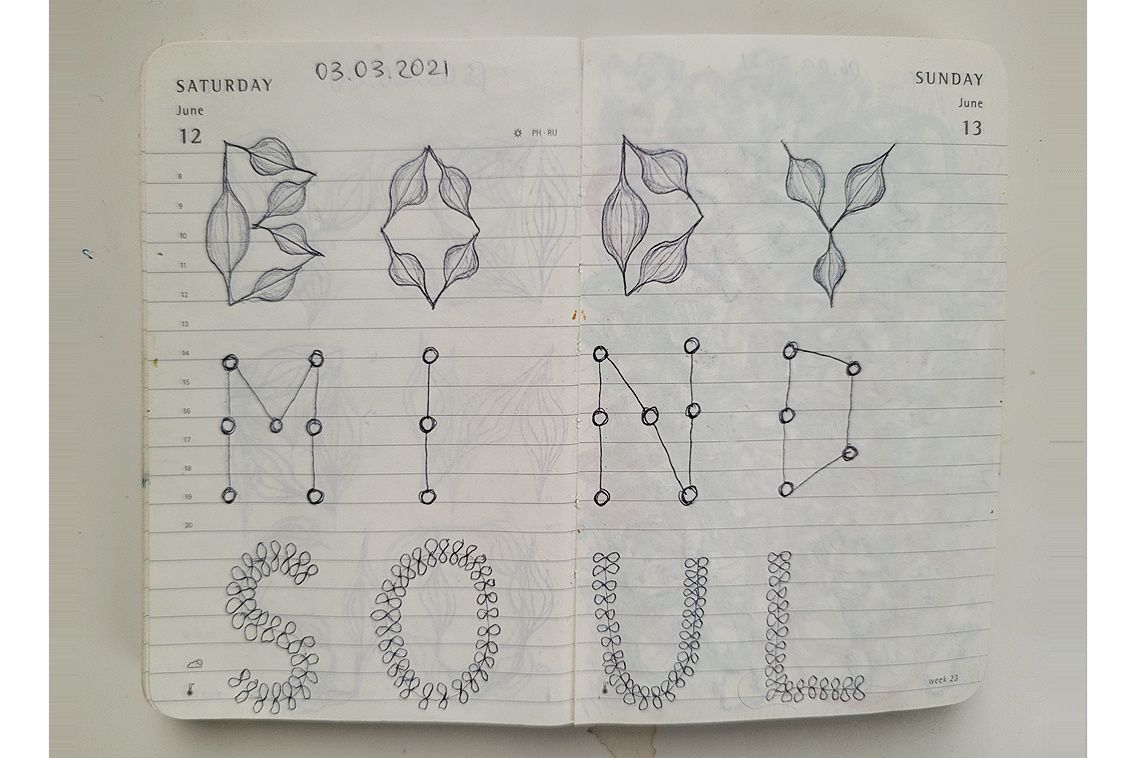 03.03.2021
SATURDAY
June
12
PH - RU
SUNDAY
June
13
BODY
8
9
10
11
12
13
MIND
14
15
16
17
18
19
20
SOUL
week 23